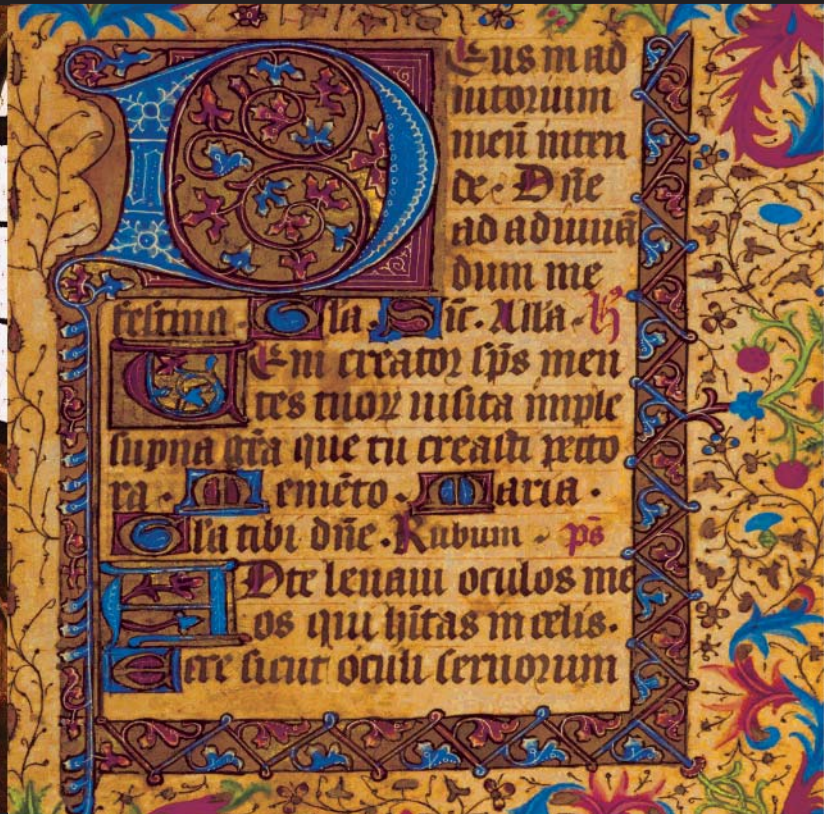 Deus in ad
iutorium
meū inten
de. Dñe
ad adiuuā
dum me
festina. Gl̄a. Sic̄. Alla. h̄
Veni creator sp̄s men
tes tuoꝝ uisita imple
supna gr̄a que tu creasti pecto
ra. Memēto. Maria.
Gl̄a tibi dñe. Rubum. ps̄
Adte leuaui oculos me
os qui hītas in celis.
Ecce sicut oculi seruorum